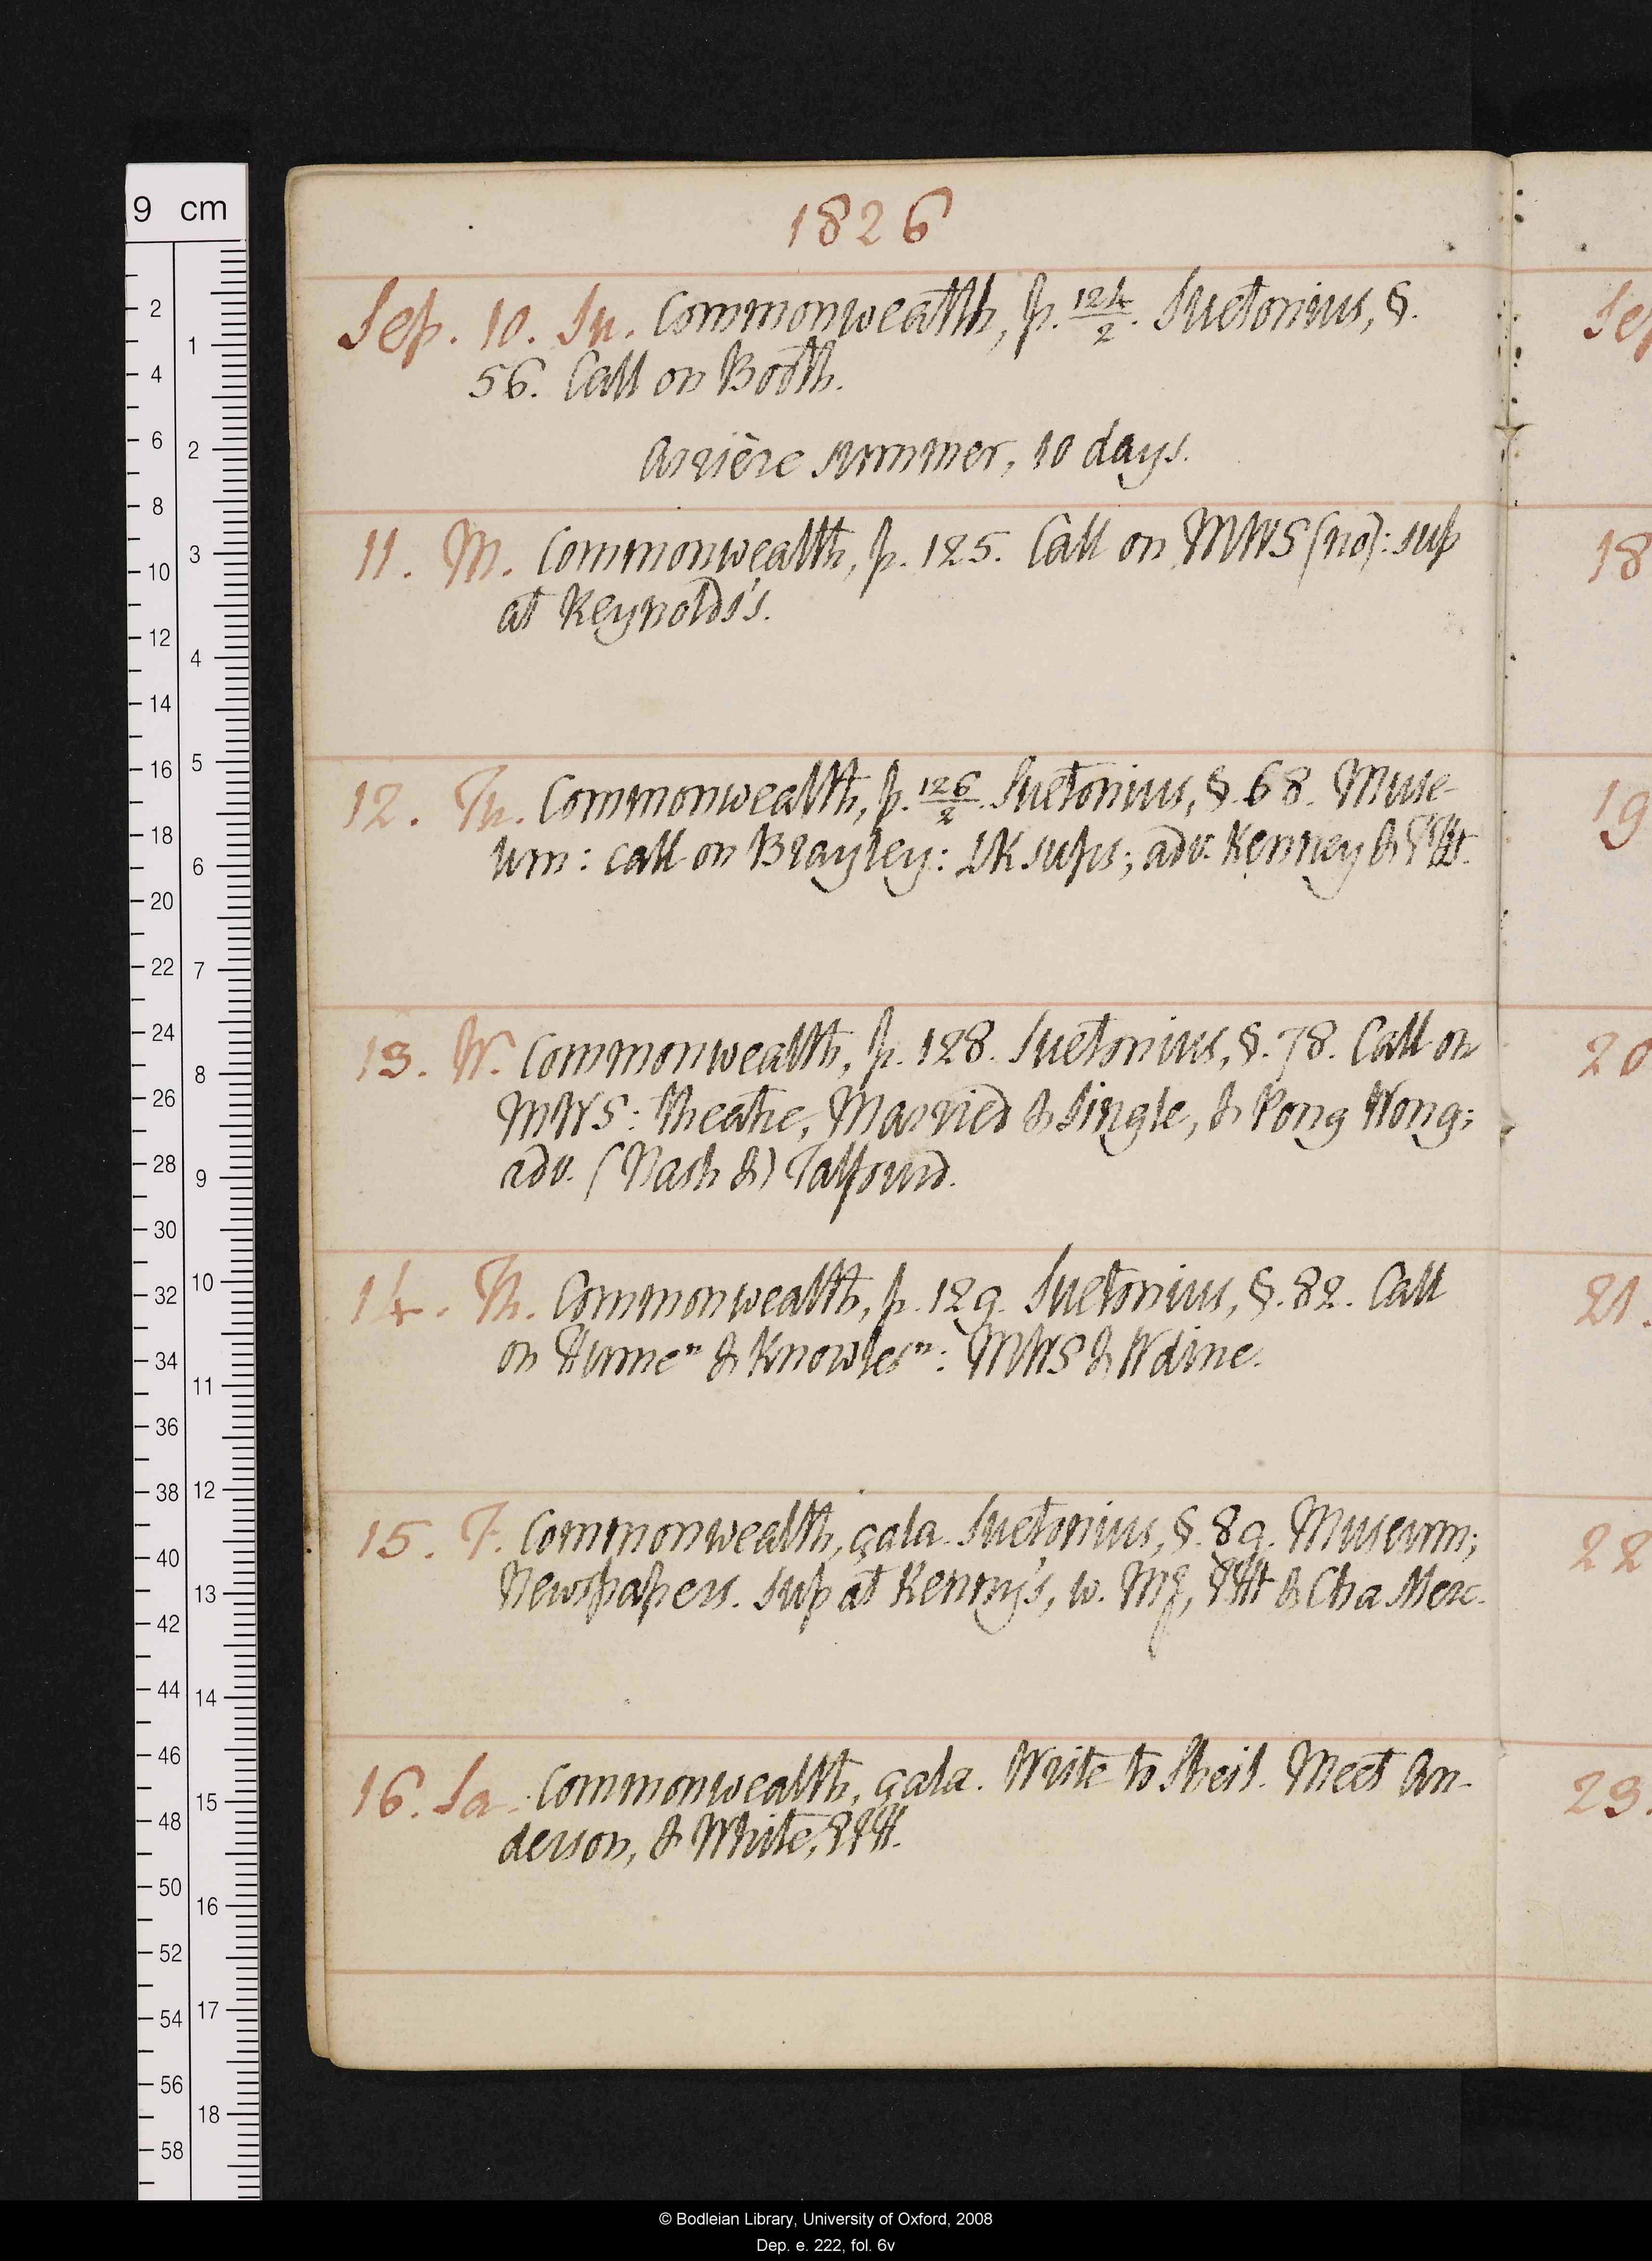 9 cm
1826
Sep. 10. Su. Commonwealth, p. 124/2. Suetonius, §.
56. Call on Booth.
Arrière summer, 10 days.
11. M. Commonwealth, p. 125. Call on MWS (no): sup
at Reynolds's.
12. Tu. Commonwealth, p. 126/2. Suetonius, §. 68. Muse-
um: call on Brayley: LK sups; adv. Kenney &
13. W. Commonwealth, p. 128. Suetonius, §. 78. Call on
MWS: theatre, Married & Single, & Pong Wong;
adv. (Nash &) Talfourd.
14. Th. Commonwealth, p. 129. Suetonius, §. 82. Call
on Hume n & Knowles n: MWS & W dine.
15. F. Commonwealth, çala. Suetonius, §. 89. Museum;
Newspapers. Sup at Kenny's, w. MJ, & Cha Merc.
16. Sa. Commonwealth, çala. Write to Sheil. Meet An-
derson, & White,
Sep
18
19
20
21.
22
23.
2
4
6
8
10
12
14
16
18
20
22
24
26
28
30
32
34
36
38
40
42
44
46
48
50
52
54
56
58
1
2
3
4
5
6
7
8
9
10
11
12
13
14
15
16
17
18
© Bodleian Library, University of Oxford, 2008
Dep. e. 222, fol. 6v